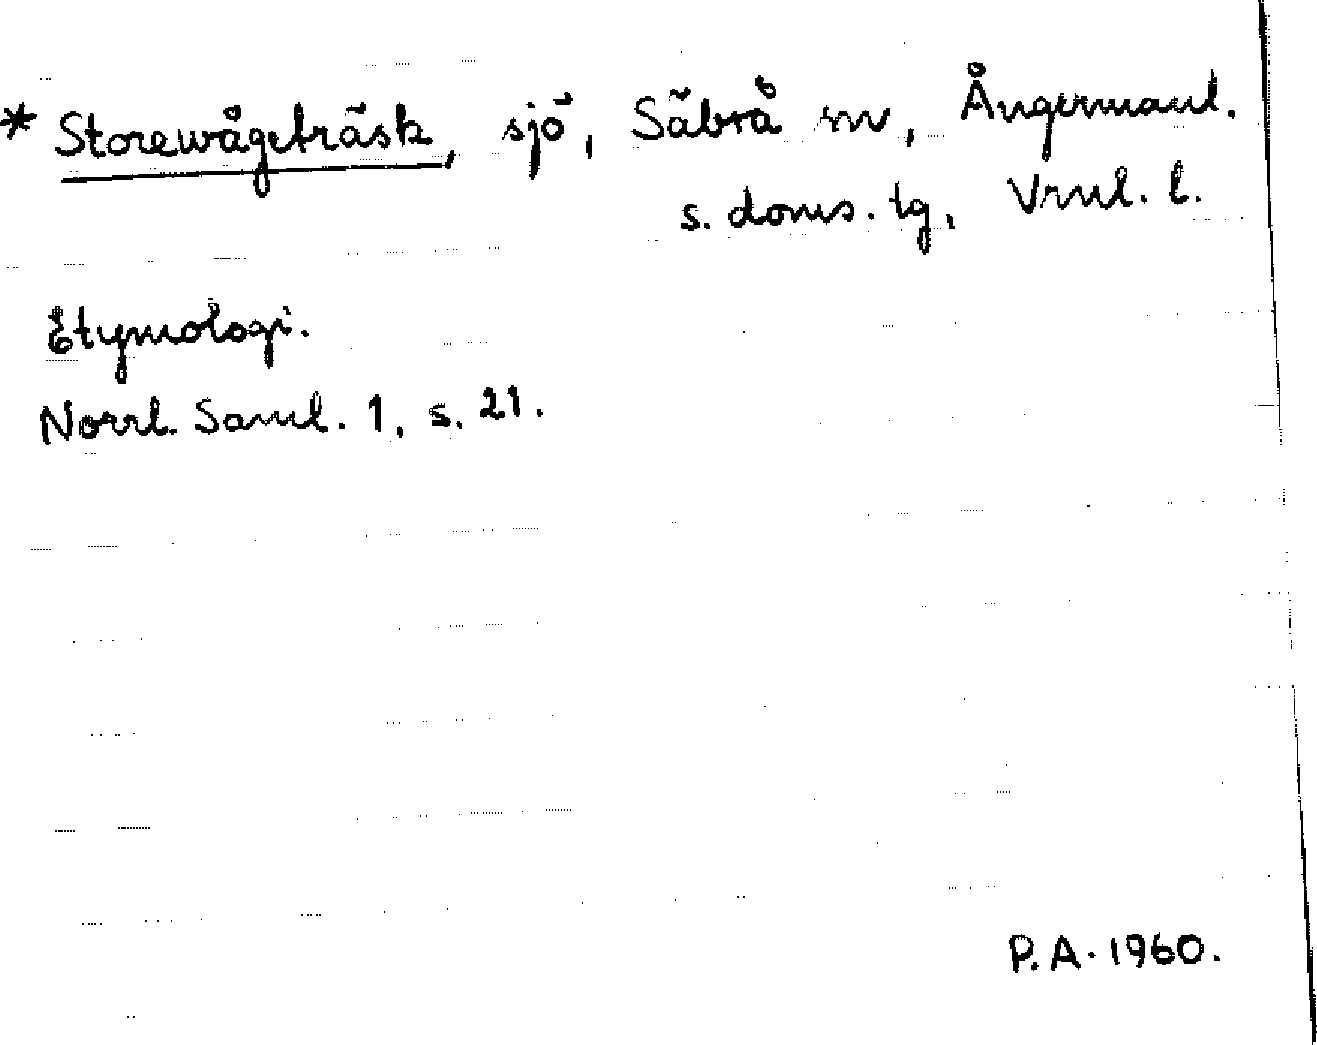 * Storewågeträsk, sjö, Säbrå sn, Ångermanl.
s. doms. lg, Vrnl. l.
Etymologi.
Norrl. Saml. 1, s. 21.
P.A. 1960.